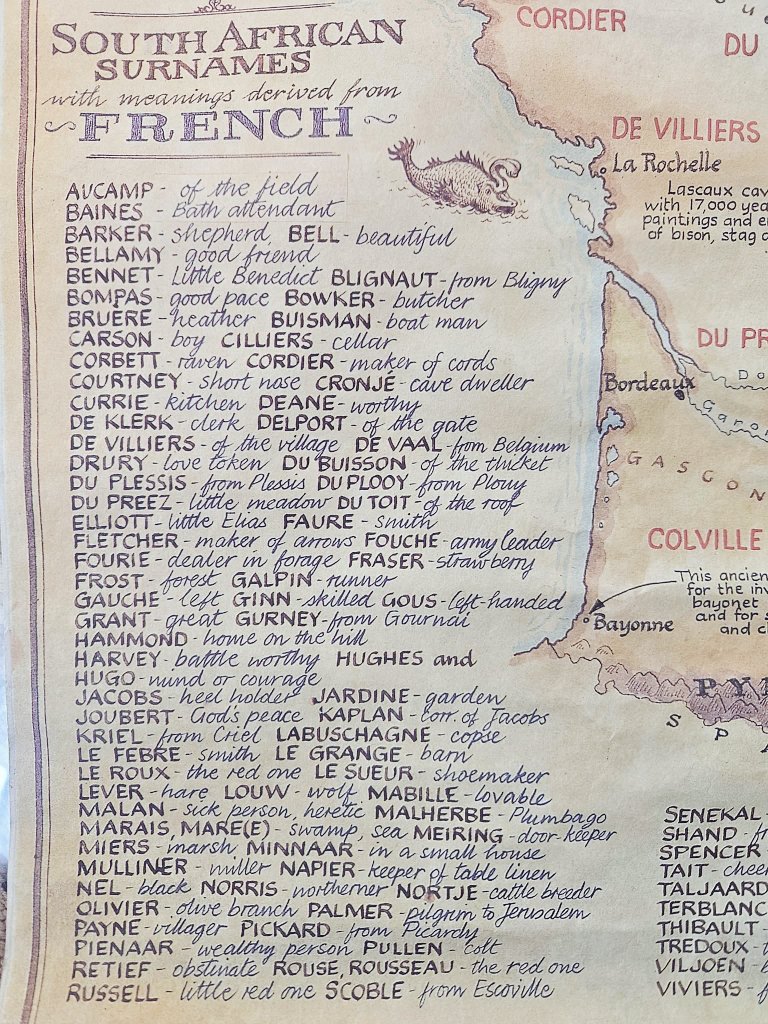 SOUTH AFRICAN
SURNAMES
with meanings derived from
FRENCH
AUCAMP - of the field
BAINES - Bath attendant
BARKER - shepherd, BELL - beautiful
BELLAMY - good friend
BENNET - Little Benedict BLIGNAUT - from Bligny
BOMPAS - good pace BOWKER - butcher
BRUERE - heather BUISMAN - boat man
CARSON - boy CILLIERS - cellar
CORBETT - raven CORDIER - maker of cords
COURTNEY - short nose CRONJE - cave dweller
CURRIE - kitchen DEANE - worthy
DE KLERK - clerk DELPORT - of the gate
DE VILLIERS - of the village DE VAAL - from Belgium
DRURY - love token DU BUISSON - of the thicket
DU PLESSIS - from Plessis DU PLOOY - from Plouy
DU PREEZ - little meadow DU TOIT - of the roof
ELLIOTT - little Elias FAURE - smith
FLETCHER - maker of arrows FOUCHE - army leader
FOURIE - dealer in forage FRASER - strawberry
FROST - forest GALPIN - runner
GAUCHE - left GINN - skilled GOUS - left-handed
GRANT - great GURNEY - from Gournai
HAMMOND - home on the hill
HARVEY - battle worthy HUGHES and
HUGO - mind or courage
JACOBS - heel holder JARDINE - garden
JOUBERT - God's peace KAPLAN - corr. of Jacobs
KRIEL - from Criel LABUSCHAGNE - copse
LE FEBRE - smith LE GRANGE - barn
LE ROUX - the red one LE SUEUR - shoemaker
LEVER - hare LOUW - wolf MABILLE - lovable
MALAN - sick person, heretic MALHERBE - Plumbago
MARAIS, MARE(E) - swamp, sea MEIRING - door-keeper
MIERS - marsh MINNAAR - in a small house
MULLINER - miller NAPIER - keeper of table linen
NEL - black NORRIS - northerner NORTJE - cattle breeder
OLIVIER - olive branch PALMER - pilgrim to Jerusalem
PAYNE - villager PICKARD - from Picardy
PIENAAR - wealthy person PULLEN - colt
RETIEF - obstinate ROUSE, ROUSSEAU - the red one
RUSSELL - little red one SCOBLE - from Escoville
CORDIER
DU
DE VILLIERS
La Rochelle
Lascaux cav
with 17,000 yea
paintings and e
of bison, stag a
DU PR
Do
Bordeaux
Garon
GASCON
COLVILLE
This ancien
for the inv
bayonet
and for s
and c
Bayonne
PY
S P
SENEKAL -
SHAND - f
SPENCER
TAIT - chee
TALJAARD
TERBLANC
THIBAULT -
TREDOUX -
VILJOEN -
VIVIERS - f